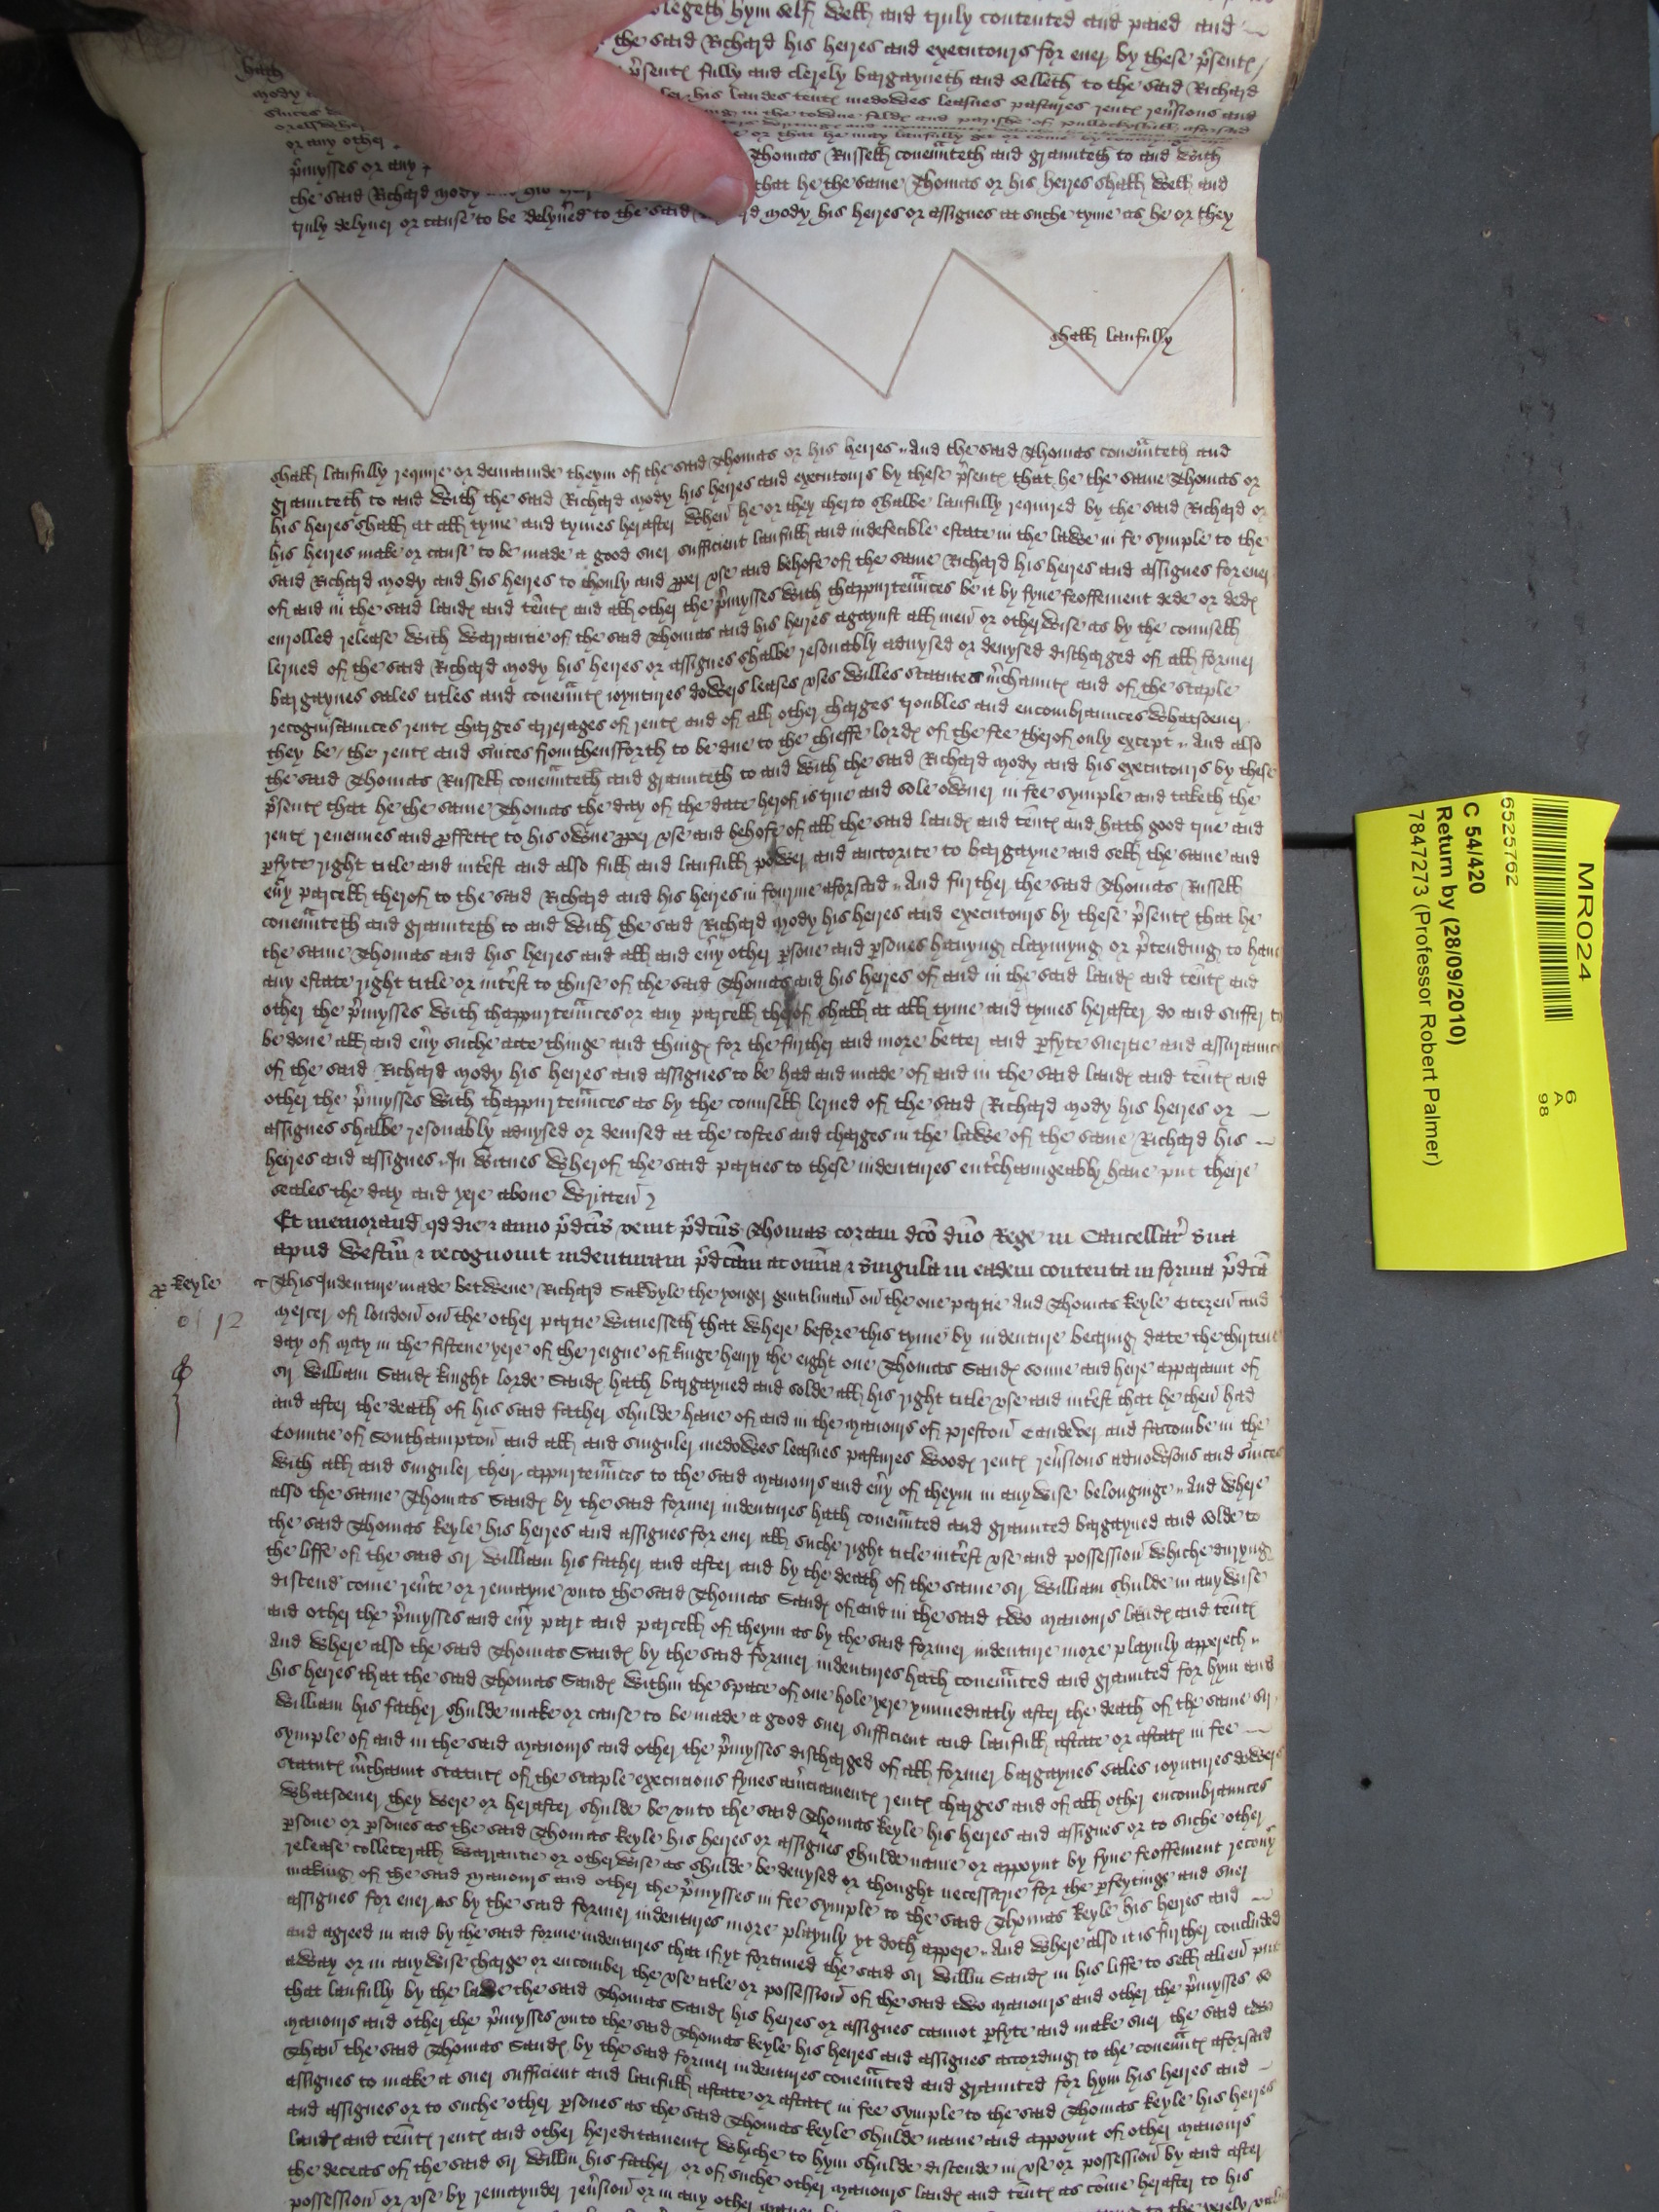 legeth hym self well and truly contented and paied and
the said Richard his heires and executours for euer by these p̄sentꝭ
p̄sentꝭ fully and clerely bargayneth and selleth to the said Richard
his landes tentꝭ medowes leasues pastures rentꝭ reu̾sions and
in the towne feldꝭ and parishe of pulloxhill aforsaid
or that he may laufully get or come by
or any other
p̄mysses or any Thomas Russell coueñnteth and graunteth to and with
the said Richard mody and his that he the same Thomas or his heires shall well and
truly delyuer or cause to be delyu̾ed to the said mody his heires or assignes at suche tyme as he or they
shall laufully
shall laufully require or demaunde theym of the said Thomas or his heires // And the said Thomas coueñnteth and
graunteth to and with the said Richard mody his heires and executours by these p̄sentꝭ that he the same Thomas or
his heires shall at all tyme and tymes herafter when̄ he or they therto shalbe laufully required by the said Richard or
his heires make or cause to be made a good suer sufficient laufull and indefecible estate in the lawe in fe symple to the
said Richard mody and his heires to thonly and ꝓper vse and behofe of the same Richard his heires and assignes for euer
of and in the said landꝭ and tēntꝭ and all other the p̄mysses with thappurteñnces be it by fyne feoffement dede or dedꝭ
enrolled release with warrantie of the said Thomas and his heires agaynst all men̄ or other wise as by the counsell
lerned of the said Richard mody his heires or assignes shalbe resonably aduysed or deuysed discharged of all former
bargaynes sales titles and coueñntꝭ ioyntures dowers leases vses willes statutes m̾chauntꝭ and of the staple
recognisaunces rentꝭ charges arrerages of rentꝭ and of all other charges troubles and encombraunces whatsoeuer
they be / the rentꝭ and s̾uices fromthensforth to be due to the chieffe lordꝭ of the fee therof only except // And also
the said Thomas Russell coueñnteth and graunteth to and with the said Richard mody and his executours by these
p̄sentꝭ that he the same Thomas the day of the date herof is true and sole owner in fee symple and taketh the
rentꝭ reuenues and ꝓffettꝭ to his owne ꝓper vse and behofe of all the said landꝭ and tēntꝭ and hath good true and
ꝑfyte right title and int̾est and also full and laufull power and auctorite to bargayne and sell the same and
eu̾y parcell therof to the said Richard and his heires in fourme aforsaid // And further the said Thomas Russell
coueñnteth and graunteth to and with the said Richard mody his heires and executours by these p̄sentꝭ that he
the same Thomas and his heires and all and eu̾y other ꝑsone and ꝑsones hauyng claymyng or p̄tending to haue
any estate right title or int̾est to thuse of the said Thomas and his heires of and in the said landꝭ and tēntꝭ and
other the p̄mysses with thappurteñnces or any parcell therof shall at all tyme and tymes herafter do and suffer to
be done all and eu̾y suche acte thinge and thingꝭ for the further and more better and ꝑfyte suertie and assuraunce
of the said Richard mody his heires and assignes to be had and made of and in the said landꝭ and tēntꝭ and
other the p̄mysses with thappurteñnces as by the counsell lerned of the said Richard mody his heires or
assignes shalbe resonably aduysed or deuised at the costes and charges in the lawe of the same Richard his
heires and assignes // In witnes wherof the said parties to these indentures ent̾chaungeably haue put theire
seales the day and yere aboue written̄
Et memorand̄ qd die ⁊ anno p̄dc̄is venit p̄dc̄us Thomas coram dc̄o dn̄o Rege in Cancellar̾ sua
apud westm̄ ⁊ recognouit indenturam p̄dc̄am ac om̄ia ⁊ singula in eadem contenta in forma p̄dc̄a
ꝑ keyle
This Indenture made betwene Richard Sakvyle the yonger gentilman̄ on̄ the one partie And Thomas keyle Citezen̄ and
12
mercer of london̄ on̄ the other partie witnesseth that where before this tyme by indenture bearing date the thirtene
day of may in the fiftene yere of the reigne of kinge henry the eight one Thomas Sandꝭ sonne and heire apparaunt of
sir william Sandꝭ knight lorde Sandꝭ hath bargayned and solde all his right title vse and int̾est that he then̄ had
and after the death of his said father shulde haue of and in the manours of preston̄ Candever and facombe in the
Countie of Southampton̄ and all and singuler medowes leasues pastures woodꝭ rentꝭ reu̾sions aduowsons and s̾uices
with all and singuler their appurteñnces to the said manours and eu̾y of theym in any wise belonginge // And where
also the same Thomas Sandꝭ by the said former indentures hath coueñnted and graunted bargayned and solde to
the said Thomas keyle his heires and assignes for euer all suche right title int̾est vse and possession̄ whiche duryng
the liffe of the said sir william his father and after and by the death of the same sir william shulde in any wise
discend come reu̾te or remayne vnto the said Thomas Sandꝭ of and in the said two manours landꝭ and tēntꝭ
and other the p̄mysses and eu̾y part and parcell of theym as by the said former indenture more playnly appereth //
And where also the said Thomas Sandꝭ by the said former indentures hath coueñnted and graunted for hym and
his heires that the said Thomas Sandꝭ within the space of one hole yere ymmediatly after the death of the same sir
william his father shulde make or cause to be made a good suer sufficient and laufull astate or astatꝭ in fee
symple of and in the said manours and other the p̄mysses discharged of all former bargaynes sales ioyntures dowers
statutꝭ m̾chaunt statutꝭ of the staple execucions fynes am̾ciamentꝭ rentꝭ charges and of all other encombraunces
whatsoeuer they were or herafter shulde be vnto the said Thomas keyle his heires and assignes or to suche other
ꝑsone or ꝑsones as the said Thomas keyle his heires or assignes shulde name or appoynt by fyne feoffement recou̾y
release collaterall warrantie or otherwise as shulde be deuysed or thought necessarie for the ꝑfeytinge and suer
making of the said manours and other the p̄mysses in fee symple to the said Thomas keyle his heires and
assignes for euer as by the said former indentures more playnly yt doth appere // And where also it is further concluded
and agreed in and by the said forme indentures that if yt fortuned the said sir willm̄ Sandꝭ in his liffe to sell alien̄ put
away or in any wise charge or encomber the vse title or possession̄ of the said two manours and other the p̄mysses so
that laufully by the lawe the said Thomas Sandꝭ his heires or assignes cannot ꝑfyte and make suer the said two
manours and other the p̄mysses vnto the said Thomas keyle his heires and assignes according to the coueñntꝭ aforsaid
Than̄ the said Thomas Sandꝭ by the said former indentures coueñnted and graunted for hym his heires and
assignes to make a suer sufficient and laufull astate or astatꝭ in fee symple to the said Thomas keyle his heires
and assignes or to suche other ꝑsones as the said Thomas keyle shulde name and appoynt of other manours
landꝭ and tēntꝭ rentꝭ and other hereditamentꝭ whiche to hym shulde discende in vse or possession̄ by and after
the deceas of the said sir willm̄ his father or of suche other manours landꝭ and tēntꝭ as come herafter to his
possession̄ or vse by remaynder reu̾sion̄ or in any other to the yerely
MR024
6
A
98
6525762
C 54/420
Return by (28/09/2010)
7847273 (Professor Robert Palmer)